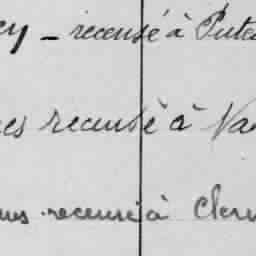 ey – recensé à Pute
es recensé à Va
ns recensé à Cler